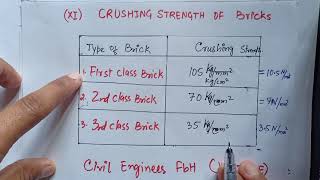 (XI) CRUSHING STRENGTH OF Bricks
Type of Brick Crushing Strength
1. First Class Brick 105 kg/mm² kg/cm² = 10.5 N/m2
2. 2nd class Brick 70 kg/cm² = 7N/m2
3. 3rd class Brick 35 kg/cm² 3.5 N/m²
Civil Engineers PbH